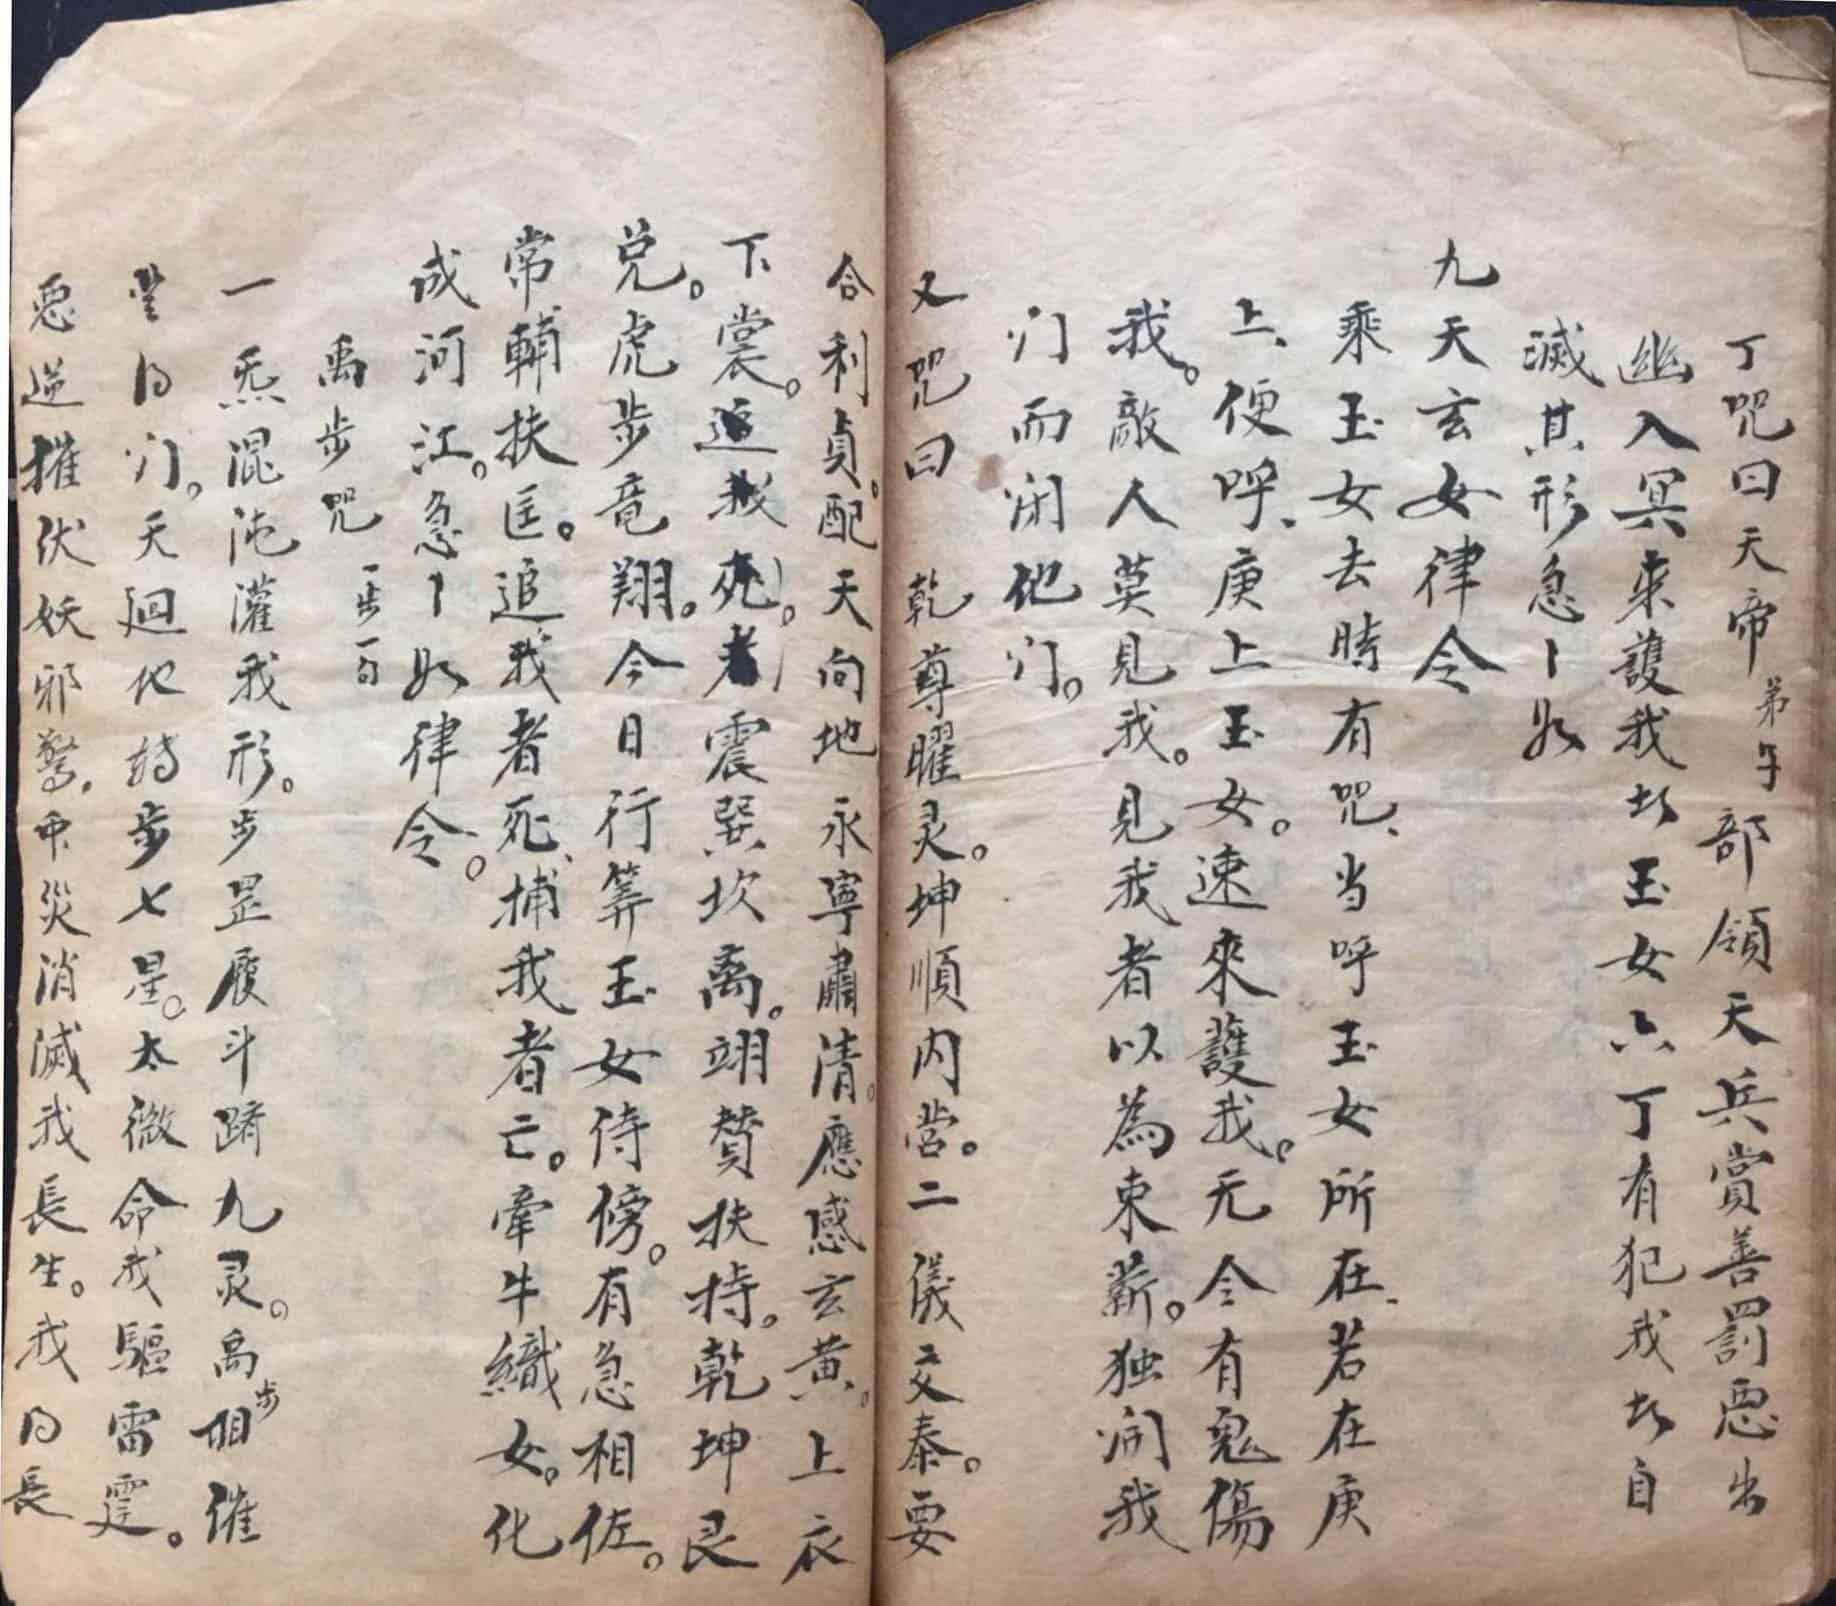 丁咒曰天帝弟子部領天兵賞善罰惡出
幽入冥來護我者玉女六丁有犯我者自
滅其形急丨如
九天玄女律令
乘玉女去時有咒、当呼玉女所在、若在庚
上、便呼、庚上玉女。速來護我。无令有鬼傷
我。敵人莫見我。見我者以為束薪。独開我
门而闭他门。
又咒曰 乾尊曜灵。坤順内营。二儀交泰。要
合利貞。配天向地永寧肅清。應感玄黄。上衣
下裳。震巽坎离。翊賛扶持。乾坤艮
兑。虎步竜翔。今日行筭玉女侍傍。有急相佐。
常輔扶匡。追我者死、捕我者亡。牽牛織女。化
成河江。急丨如律令。
禹步咒 一步一句
一炁混沌灌我形。步罡履斗蹐九灵。禹步相催
登阳门。天廻地转步七星。太微命我驅雷霆。
惡逆摧伏妖邪驚。中災消滅我長生。我得長